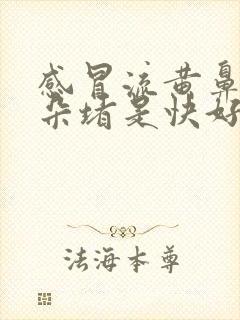 感冒流黄鼻
朵堵是快好
法海本尊